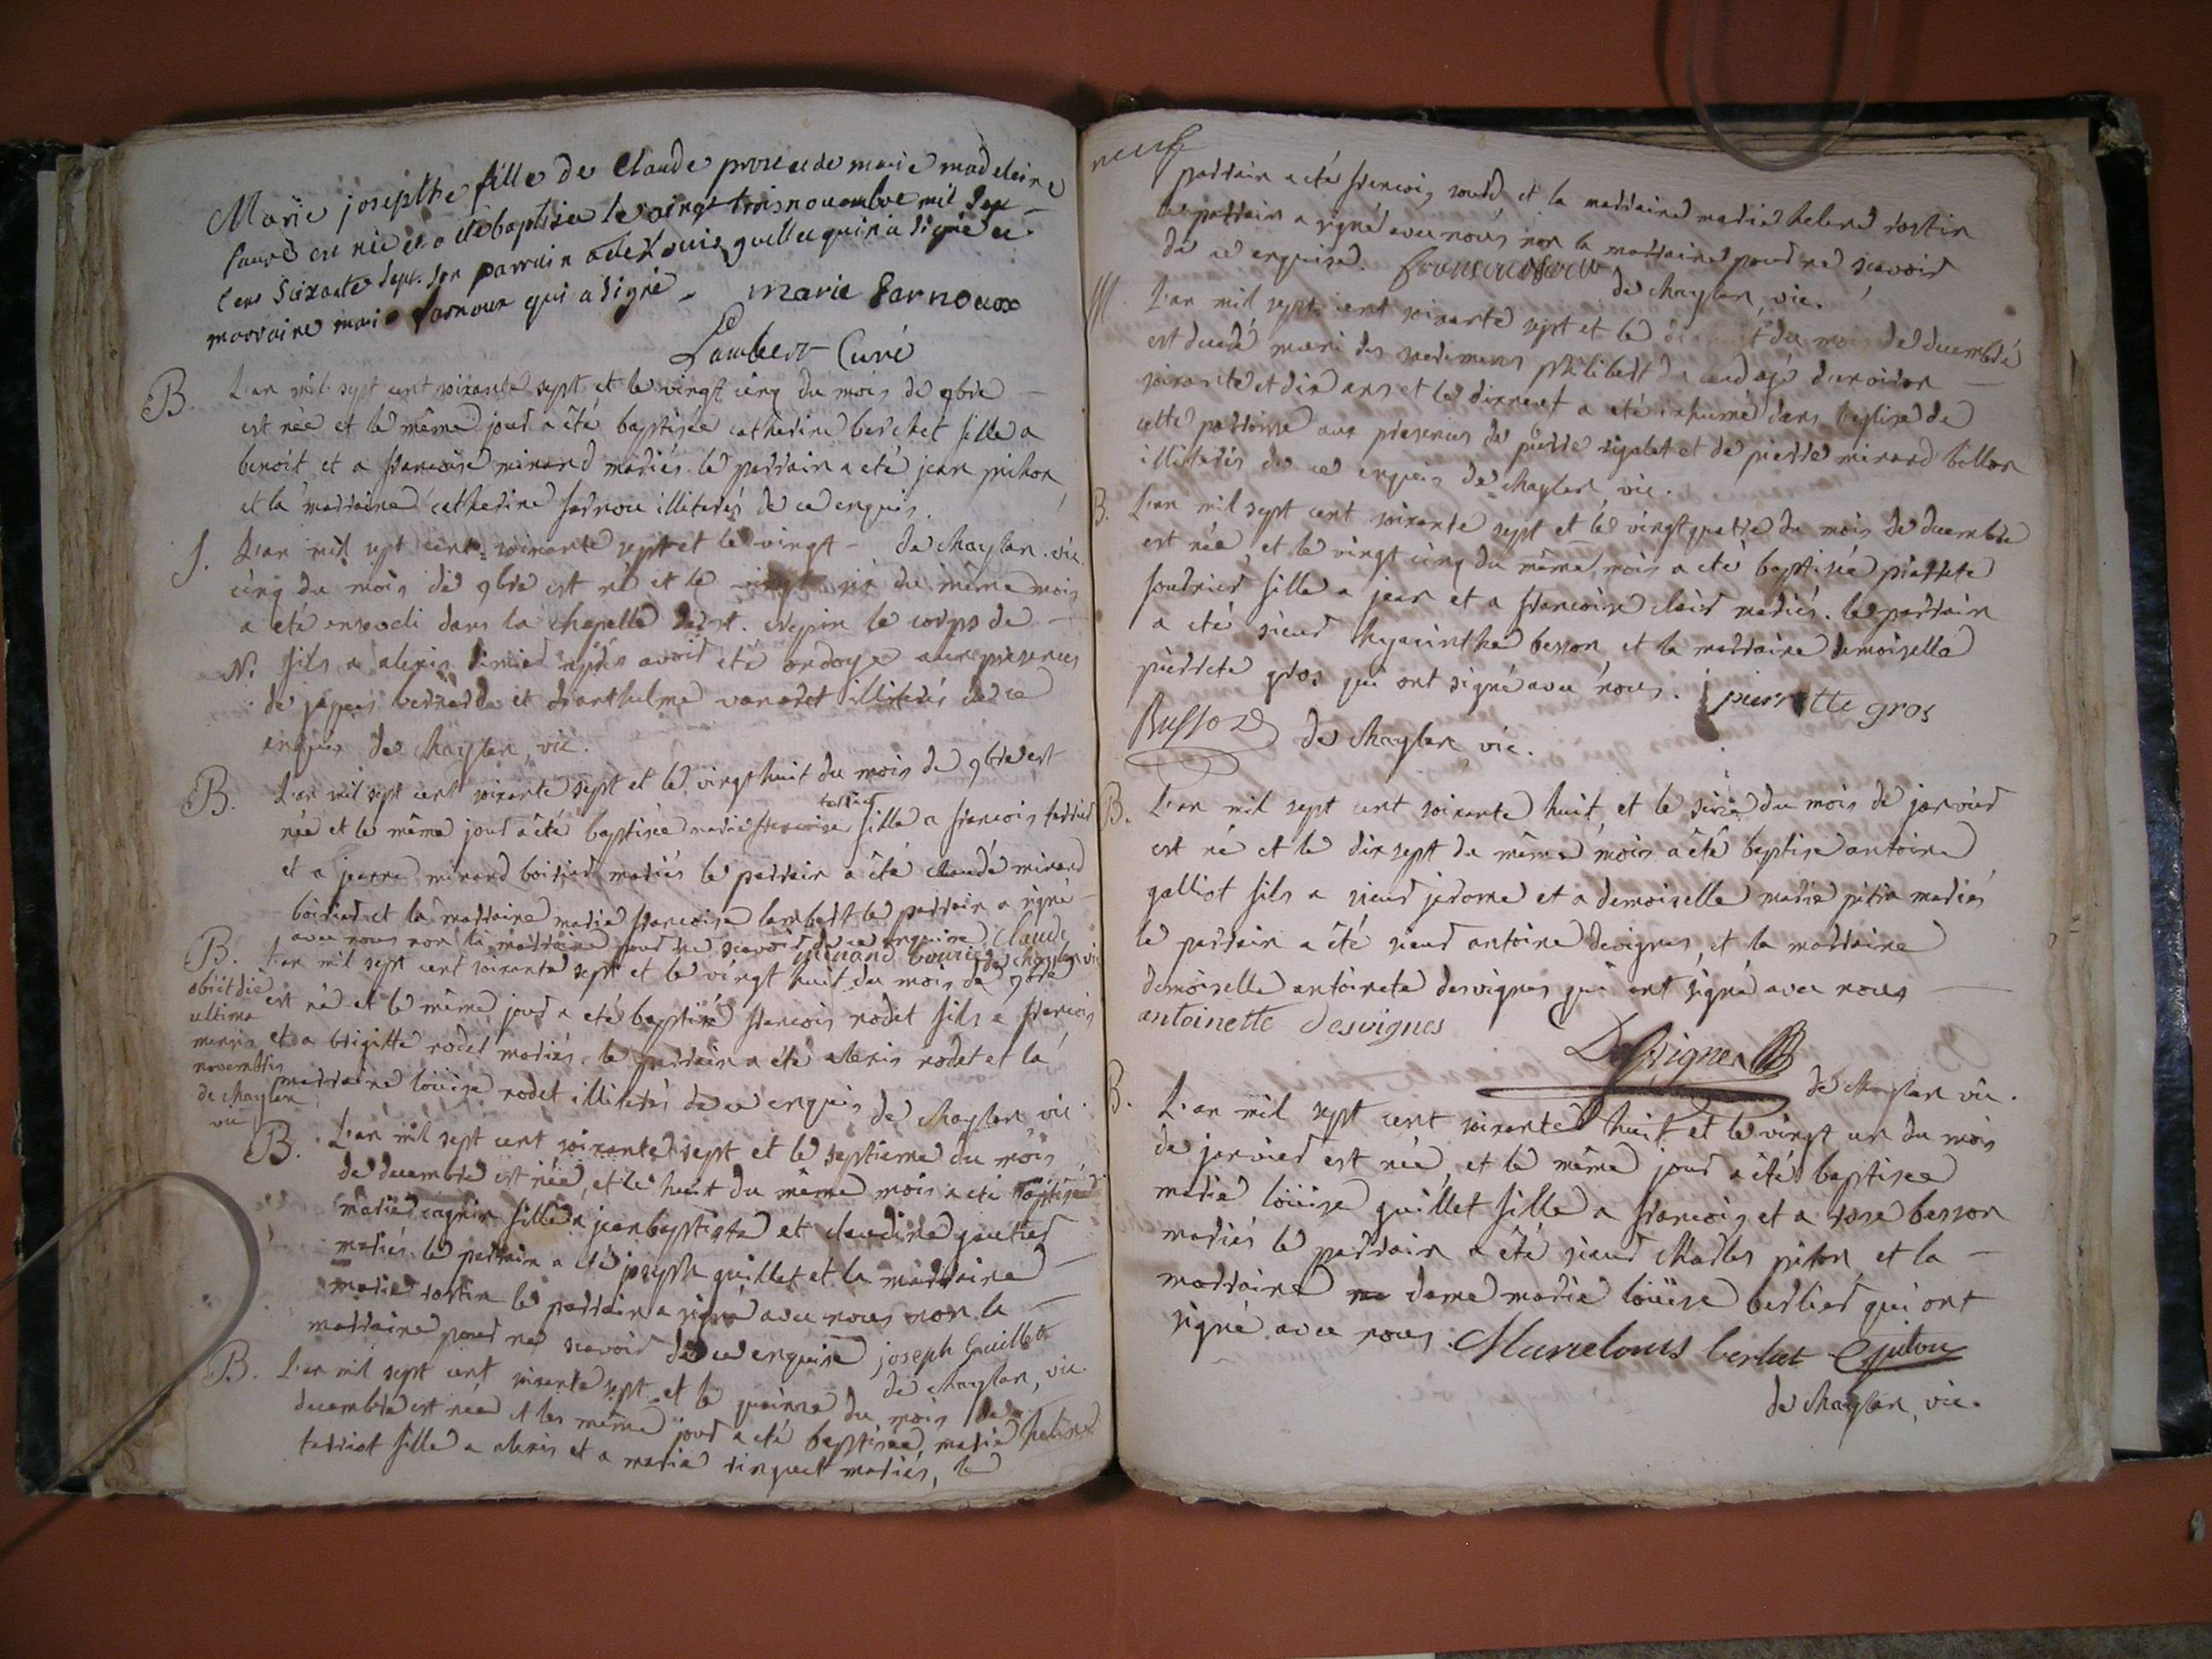 Marie josephte fille de Claude prost et de marie madeleine
faure est née et a été baptisée le vingt trois novembre mil sept
cens soixante sept. son parrain a été Louis guillet qui n'a signé et
marraine marie Fornoux qui a signé. marie Barnoux
Lambert Curé
B. L'an mil sept cent soixante sept et le vingt cinq du mois de 9bre
est née et le même jour a été baptisée catherine berchet fille a
benoit et a francoise minard mariés. le parrain a eté jean pichon
et la marraine catherine fornou illiterés de ce enquis.
L'an mil sept cent soixante sept et le vingt – de chaylan vic
cinq du mois de 9bre est né et le vingt six du même mois
a eté enseveli dans la chapelle de st. crepin le corps de
N. fils a alexis après avoir été ondoyé aux presences
de et d'anthelme illiterés de ce
enquis de chaylan, vic.
B. L'an mil sept cent soixante sept et le vingt huit du mois de 9bre est
née et le même jour a été baptisée marie francoise terrier fille a francois terrier
et a jeanne minard boirier mariés le parrain a été claude minard
boirier et la marraine marie francoise lambert le parrain a signé
avec nous non la marraine pour ne scavoir de ce enquise claude
minard bourier de chaylan vic
B. L'an mil sept cent soixante sept et le vingt huit du mois de 9bre
obiit die
ultima
mensis
novembris
de chaylan
vic
est né et le même jour a eté baptisé francois rodet fils a francois
et a brigitte rodet mariés. le parrain a été alexis rodet et la
marraine loüise rodet illiterés de ce enquis de chaylan vic.
B. L'an mil sept cent soixante sept et le septieme du mois
de decembre est née, et le huit du même mois a eté baptisée
marie cagnin fille a jean baptiste et claudine gautier
mariés. le parrain a eté joseph guillet et la marraine
marie rostin le parrain a signé avec nous non la
marraine pour ne scavoir de ce enquise joseph Guillet
de chaylan, vic.
B. L'an mil sept cent soixante sept et le quinze du mois de
decembre est née et les même jour a eté baptisée, marie helene
terriot fille a alexis et a marie mariés, le
parrain a eté francois et la marraine marie helene rostin
le parrain a signé avec nous non la marraine pour ne scavoir
de ce enquise. de chaylan, vic.
M. L'an mil sept cent soixante sept et le du mois de decembre
est decedé muni des sacremens philibert agé d'environ
soixante et dix ans et le dixneuf a eté inhumé dans l'eglise de
cette parroisse aux presences de pierre rigolet et de pierre minard billon
illiterés de ce enquis de chaylan, vic.
B. L'an mil sept cent soixante sept et le vingt quatre du mois de decembre
est née, et le vingt cinq du même mois a eté baptisée pierrete
fille a jean et a francoise clair mariés. le parrain
a eté sieur hyacinthe besson et la marraine demoiselle
pierrete gros qui ont signé avec nous. pierrette gros
Busson de chaylan, vic.
B. L'an mil sept cent soixante huit, et le seize du mois de janvier
est né et le dix sept du même mois a été baptisé antoine
galliot fils a sieur jerome et a demoiselle marie pitra mariés
le parrain a été sieur antoine desvignes, et la marraine
demoiselle antoinete desvignes qui ont signé avec nous
antoinette desvignes
Desvignes de chaylan vic.
B. L'an mil sept cent soixante huit et le vingt un du mois
de janvier est née, et le même jour a été baptisee
marie loüise guillet fille a francois et a rose besson
mariés le parrain a été sieur charles piton et la
marraine dame marie loüise berlier qui ont
signé avec nous. Marie Louis berliet Cpiton
de chaylan, vic.